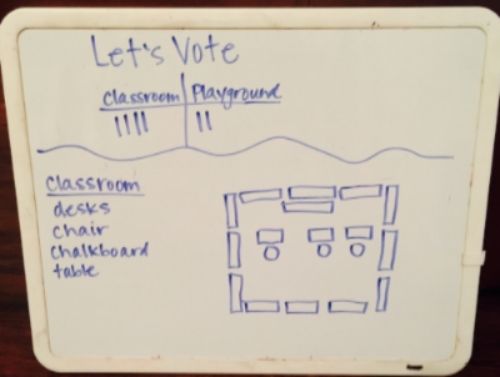 Let's Vote
classroom Playground
|||| ||
classroom
desks
chair
chalkboard
table